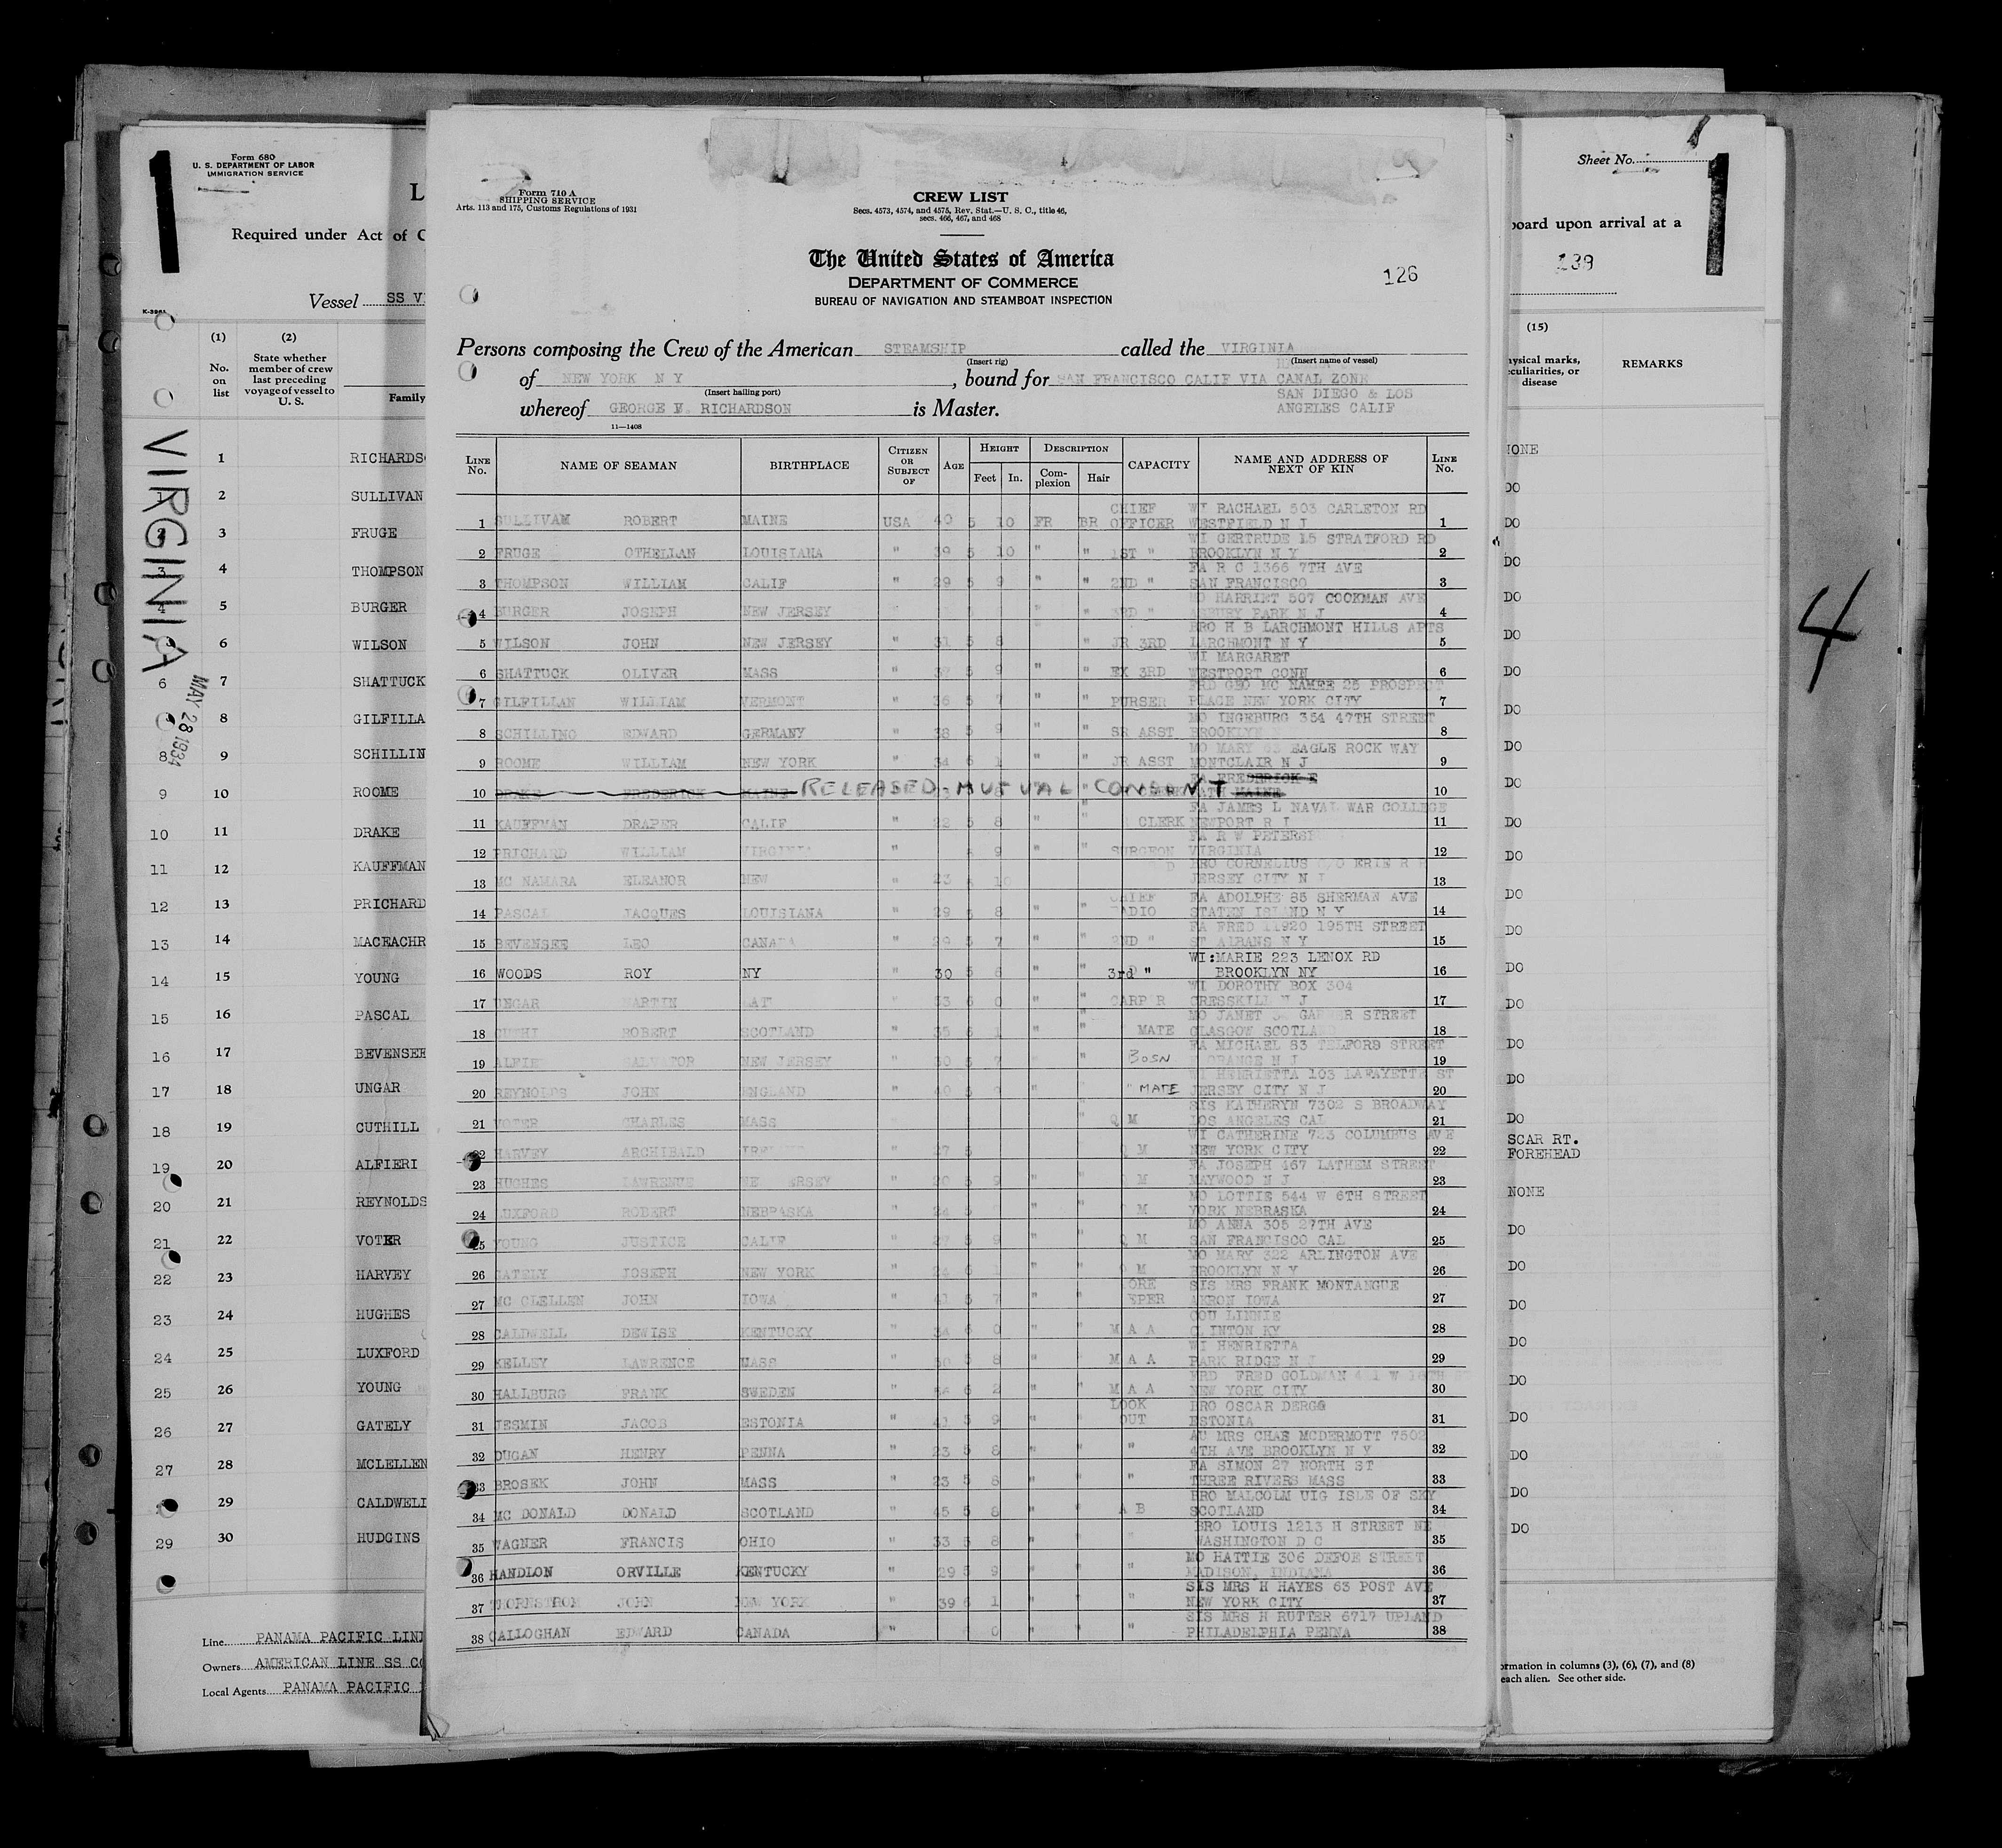 Form 680
U. S. DEPARTMENT OF LABOR
IMMIGRATION SERVICE
Required under Act of C
Vessel SS VI
K-3961
(1) (2)
No. on list
State whether member of crew last preceding voyage of vessel to U. S.
Family
VIRGINIA
MAY 28 1934
1 RICHARDS
2 SULLIVAN
3 FRUGE
3 4 THOMPSON
4 5 BURGER
6 WILSON
6 7 SHATTUCK
8 GILFILLA
8 9 SCHILLIN
9 10 ROOME
10 11 DRAKE
11 12 KAUFFMAN
12 13 PRICHARD
13 14 MACEACHR
14 15 YOUNG
15 16 PASCAL
16 17 BEVENSEE
17 18 UNGAR
18 19 CUTHILL
19 20 ALFIERI
20 21 REYNOLDS
21 22 VOTER
22 23 HARVEY
23 24 HUGHES
24 25 LUXFORD
25 26 YOUNG
26 27 GATELY
27 28 MCLELLEN
29 CALDWELL
29 30 HUDGINS
Line PANAMA PACIFIC LINE
Owners AMERICAN LINE SS CO
Local Agents PANAMA PACIFIC
Form 710 A
SHIPPING SERVICE
Arts. 113 and 175, Customs Regulations of 1931
CREW LIST
Secs. 4573, 4574, and 4575, Rev. Stat.—U. S. C., title 46,
secs. 466, 467, and 468
The United States of America
DEPARTMENT OF COMMERCE
BUREAU OF NAVIGATION AND STEAMBOAT INSPECTION
126
Persons composing the Crew of the American STEAMSHIP called the VIRGINIA
(Insert rig) (Insert name of vessel)
of NEW YORK N Y, bound for SAN FRANCISCO CALIF VIA CANAL ZONE
(Insert hailing port) SAN DIEGO & LOS
whereof GEORGE V. RICHARDSON is Master. ANGELES CALIF
11—1408
LINE No. NAME OF SEAMAN BIRTHPLACE CITIZEN OR SUBJECT OF AGE HEIGHT Feet In. DESCRIPTION Complexion Hair CAPACITY NAME AND ADDRESS OF NEXT OF KIN LINE No.
CHIEF WI RACHAEL 503 CARLETON RD
1 SULLIVAN ROBERT MAINE USA 40 5 10 FR BR OFFICER WESTFIELD N J 1
WI GERTRUDE 15 STRATFORD RD
2 FRUGE OTHELLAN LOUISIANA " 39 5 10 " " 1ST " BROOKLYN N Y 2
FA R C 1366 7TH AVE
3 THOMPSON WILLIAM CALIF " 29 5 9 " " 2ND " SAN FRANCISCO 3
MO HARRIET 507 COOKMAN AVE
4 BURGER JOSEPH NEW JERSEY " " 3RD " ASBURY PARK N J 4
BRO H B LARCHMONT HILLS APTS
5 WILSON JOHN NEW JERSEY " 31 5 8 " JR 3RD LARCHMONT N Y 5
WI MARGARET
6 SHATTUCK OLIVER MASS " 37 5 9 " " EX 3RD WESTPORT CONN 6
FRD GEO MC NAMEE 25 PROSPECT
7 GILFILLAN WILLIAM VERMONT " 36 5 7 " " PURSER PLACE NEW YORK CITY 7
MO INGEBURG 354 47TH STREET
8 SCHILLING EDWARD GERMANY " 38 5 9 " SR ASST BROOKLYN 8
MO MARY 63 EAGLE ROCK WAY
9 ROOME WILLIAM NEW YORK " 34 6 1 " " JR ASST MONTCLAIR N J 9
FA FREDERICK E
10 DRAKE FREDERICK MAINE RELEASED - MUTUAL CONSENT BATH MAINE 10
FA JAMES L NAVAL WAR COLLEGE
11 KAUFFMAN DRAPER CALIF " 22 5 8 " " CLERK NEWPORT R I 11
FA R W PETERS
12 PRICHARD WILLIAM VIRGINIA " 5 9 " " SURGEON VIRGINIA 12
BRO CORNELIUS C/O ERIE R R
13 MC NAMARA ELEANOR NEW " 23 5 10 JERSEY CITY N J 13
CHIEF FA ADOLPHE 85 SHERMAN AVE
14 PASCAL JACQUES LOUISIANA " 29 5 8 " RADIO STATEN ISLAND N Y 14
FA FRED 11920 195TH STREET
15 BEVENSEE LEO CANADA " 29 5 7 " " 2ND " ST ALBANS N Y 15
WI:MARIE 223 LENOX RD
16 WOODS ROY NY " 30 5 6 " " 3rd " BROOKLYN NY 16
WI DOROTHY BOX 304
17 UNGAR MARTIN LAT " 53 6 0 " " CARP'R CRESSKILL N J 17
MO JANET STREET
18 CUTHI ROBERT SCOTLAND " 35 6 1 " " MATE GLASGOW SCOTLAND 18
FA MICHAEL 83 TELFORD STREET
19 ALFIE SALVATOR NEW JERSEY " 30 5 7 " BOSN ORANGE N J 19
WI HENRIETTA 103 LAFAYETTE ST
20 REYNOLDS JOHN ENGLAND " 40 5 9 " " MATE JERSEY CITY N J 20
SIS KATHERYN 7302 S BROADWAY
21 VOTER CHARLES MASS " Q M LOS ANGELES CAL 21
WI CATHERINE 723 COLUMBUS AVE
22 HARVEY ARCHIBALD IRE " 27 5 Q M NEW YORK CITY 22
FA JOSEPH 467 LATHEM STREET
23 HUGHES LAWRENCE NEW JERSEY " 20 5 9 Q M MAYWOOD N J 23
MO LOTTIE 544 W 6TH STREET
24 LUXFORD ROBERT NEBRASKA " 24 5 " " Q M YORK NEBRASKA 24
MO ANNA 305 27TH AVE
25 YOUNG JUSTICE CALIF " 27 5 9 " " Q M SAN FRANCISCO CAL 25
MO MARY 322 ARLINGTON AVE
26 GATELY JOSEPH NEW YORK " 24 6 1 " " Q M BROOKLYN N Y 26
ORE SIS MRS FRANK MONTANGUE
27 MC CLELLEN JOHN IOWA " 41 5 7 " " EPER AKRON IOWA 27
COU LINNIE
28 CALDWELL DEWISE KENTUCKY " 34 6 0 " " M A A CLINTON KY 28
WI HENRIETTA
29 KELLEY LAWRENCE MASS " 30 5 8 " " M A A PARK RIDGE N J 29
FRD FRED GOLDMAN W
30 HALLBURG FRANK SWEDEN " 6 2 " " M A A NEW YORK CITY 30
LOOK BRO OSCAR DERGG
31 JESMIN JACOB ESTONIA " 41 5 9 " " OUT ESTONIA 31
AU MRS CHAS MCDERMOTT 7502
32 DUGAN HENRY PENNA " 23 5 8 " " " 4TH AVE BROOKLYN N Y 32
FA SIMON 27 NORTH ST
33 BROSEK JOHN MASS " 23 5 8 " " " THREE RIVERS MASS 33
BRO MALCOLM UIG ISLE OF SKY
34 MC DONALD DONALD SCOTLAND " 45 5 8 " " A B SCOTLAND 34
BRO LOUIS 1213 H STREET NE
35 WAGNER FRANCIS OHIO " 33 5 8 " " " WASHINGTON D C 35
MO HATTIE 306 DEFOE STREET
36 HANDLON ORVILLE KENTUCKY " 29 5 9 " " " MADISON, INDIANA 36
SIS MRS H HAYES 63 POST AVE
37 THORNSTROM JOHN NEW YORK " 39 6 1 " " " NEW YORK CITY 37
SIS MRS H RUTTER 6717 UPLAND
38 CALLOGHAN EDWARD CANADA " 0 " " " PHILADELPHIA PENNA 38
Sheet No. 1
board upon arrival at a
139
(15)
ysical marks, culiarities, or disease
REMARKS
NONE
DO
DO
DO
DO
DO
DO
DO
DO
DO
DO
DO
DO
DO
DO
DO
DO
DO
DO
SCAR RT.
FOREHEAD
NONE
DO
DO
DO
DO
DO
DO
DO
DO
DO
ormation in columns (3), (6), (7), and (8)
each alien. See other side.
4